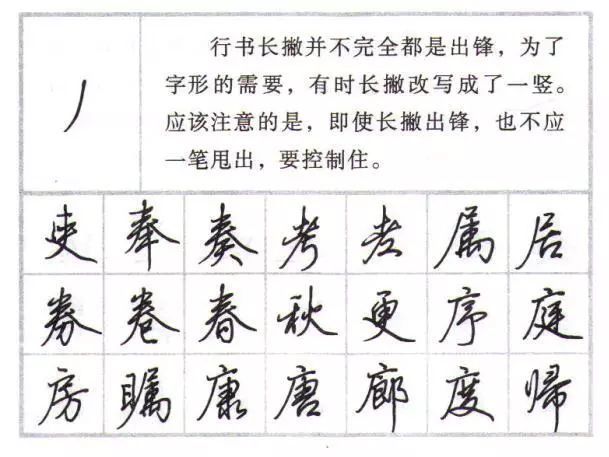 行书长撇并不完全都是出锋，为了
字形的需要，有时长撇改写成了一竖。
应该注意的是，即使长撇出锋，也不应
一笔甩出，要控制住。
吏 奉 奏 考 老 属 居
券 卷 春 秋 更 序 庭
房 瞩 康 唐 廊 度 归